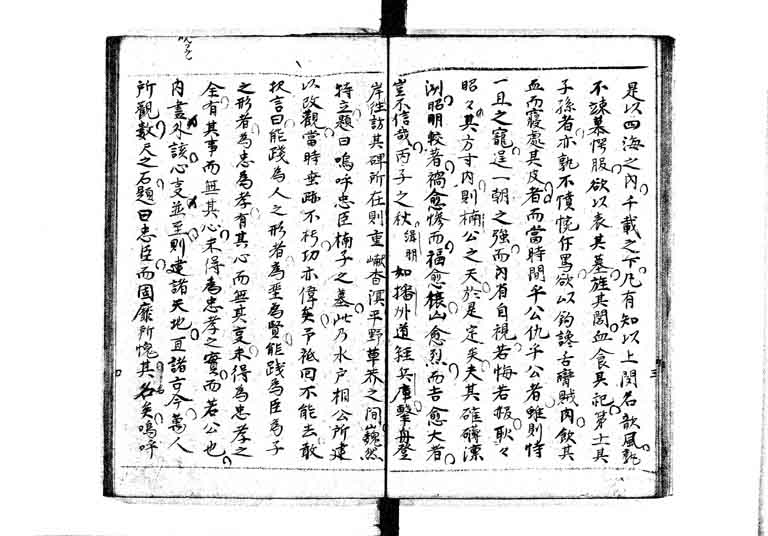 是以四海之内千載之下凡有知以上聞名歆風孰
不竦慕愕服欲以表其墓旌其閭血食其祀第士其
子孫者亦孰不憤惋作罵欲以鈎讒舌臠賊肉飲其
血而寢處其皮者而當時閧乎公仇乎公者雖則恃
一旦之寵逞一朝之強而内有自視若悔若赧耿々
昭々其方寸内則楠公之天於是定矣夫其確礴凜
冽昭明較著禍愈慘而福愈 山愈烈而吉愈大者
豈不信哉丙子之秋 如播外道経兵庫撃舟登
岸往訪其碑所在則重巘杳溟平野草莽之間巍然
特立題曰嗚呼忠臣楠子之墓此乃水戸相公所建
以改觀當時垂跡不朽功亦偉矣予祗回不能去敢
抗言曰能踐為人之形者為聖為賢能踐為臣為子
之形者為忠為孝有其心而無其事未得為忠孝之
全有其事而無其心未得為忠孝之實而若公也
内盡外該心事並至則建諸天地亘諸古今萬人
所觀數尺之石題曰忠臣而固靡所愧其名矣嗚呼